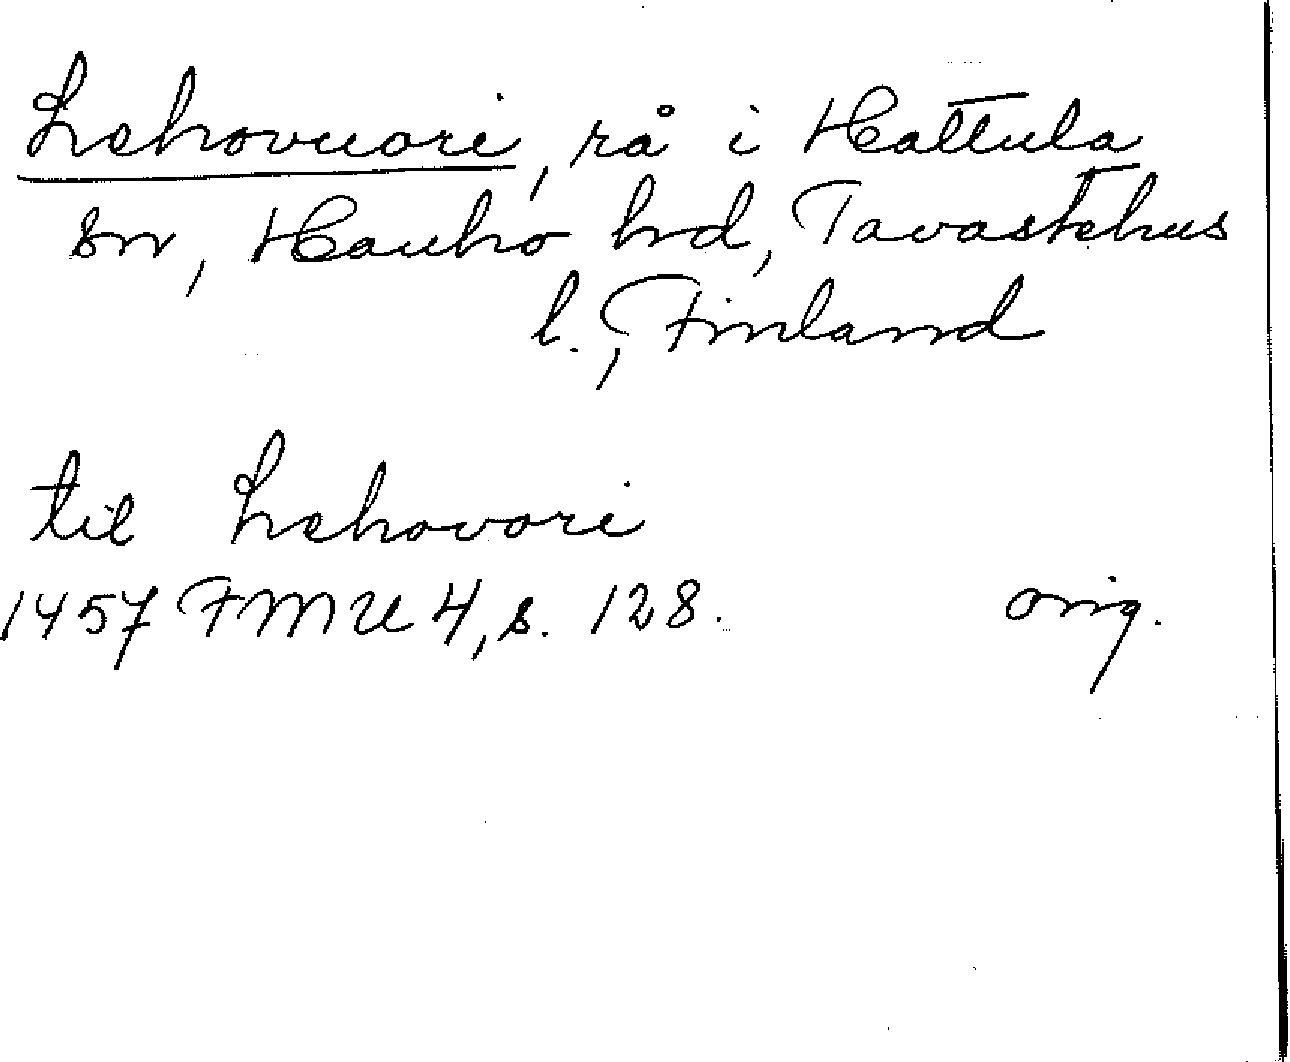 Lehovuori, rå i Hattula
sn, Hauho hrd, Tavastehus
l., Finland
til Lehovori
1457 FMU 4, s. 128. orig.